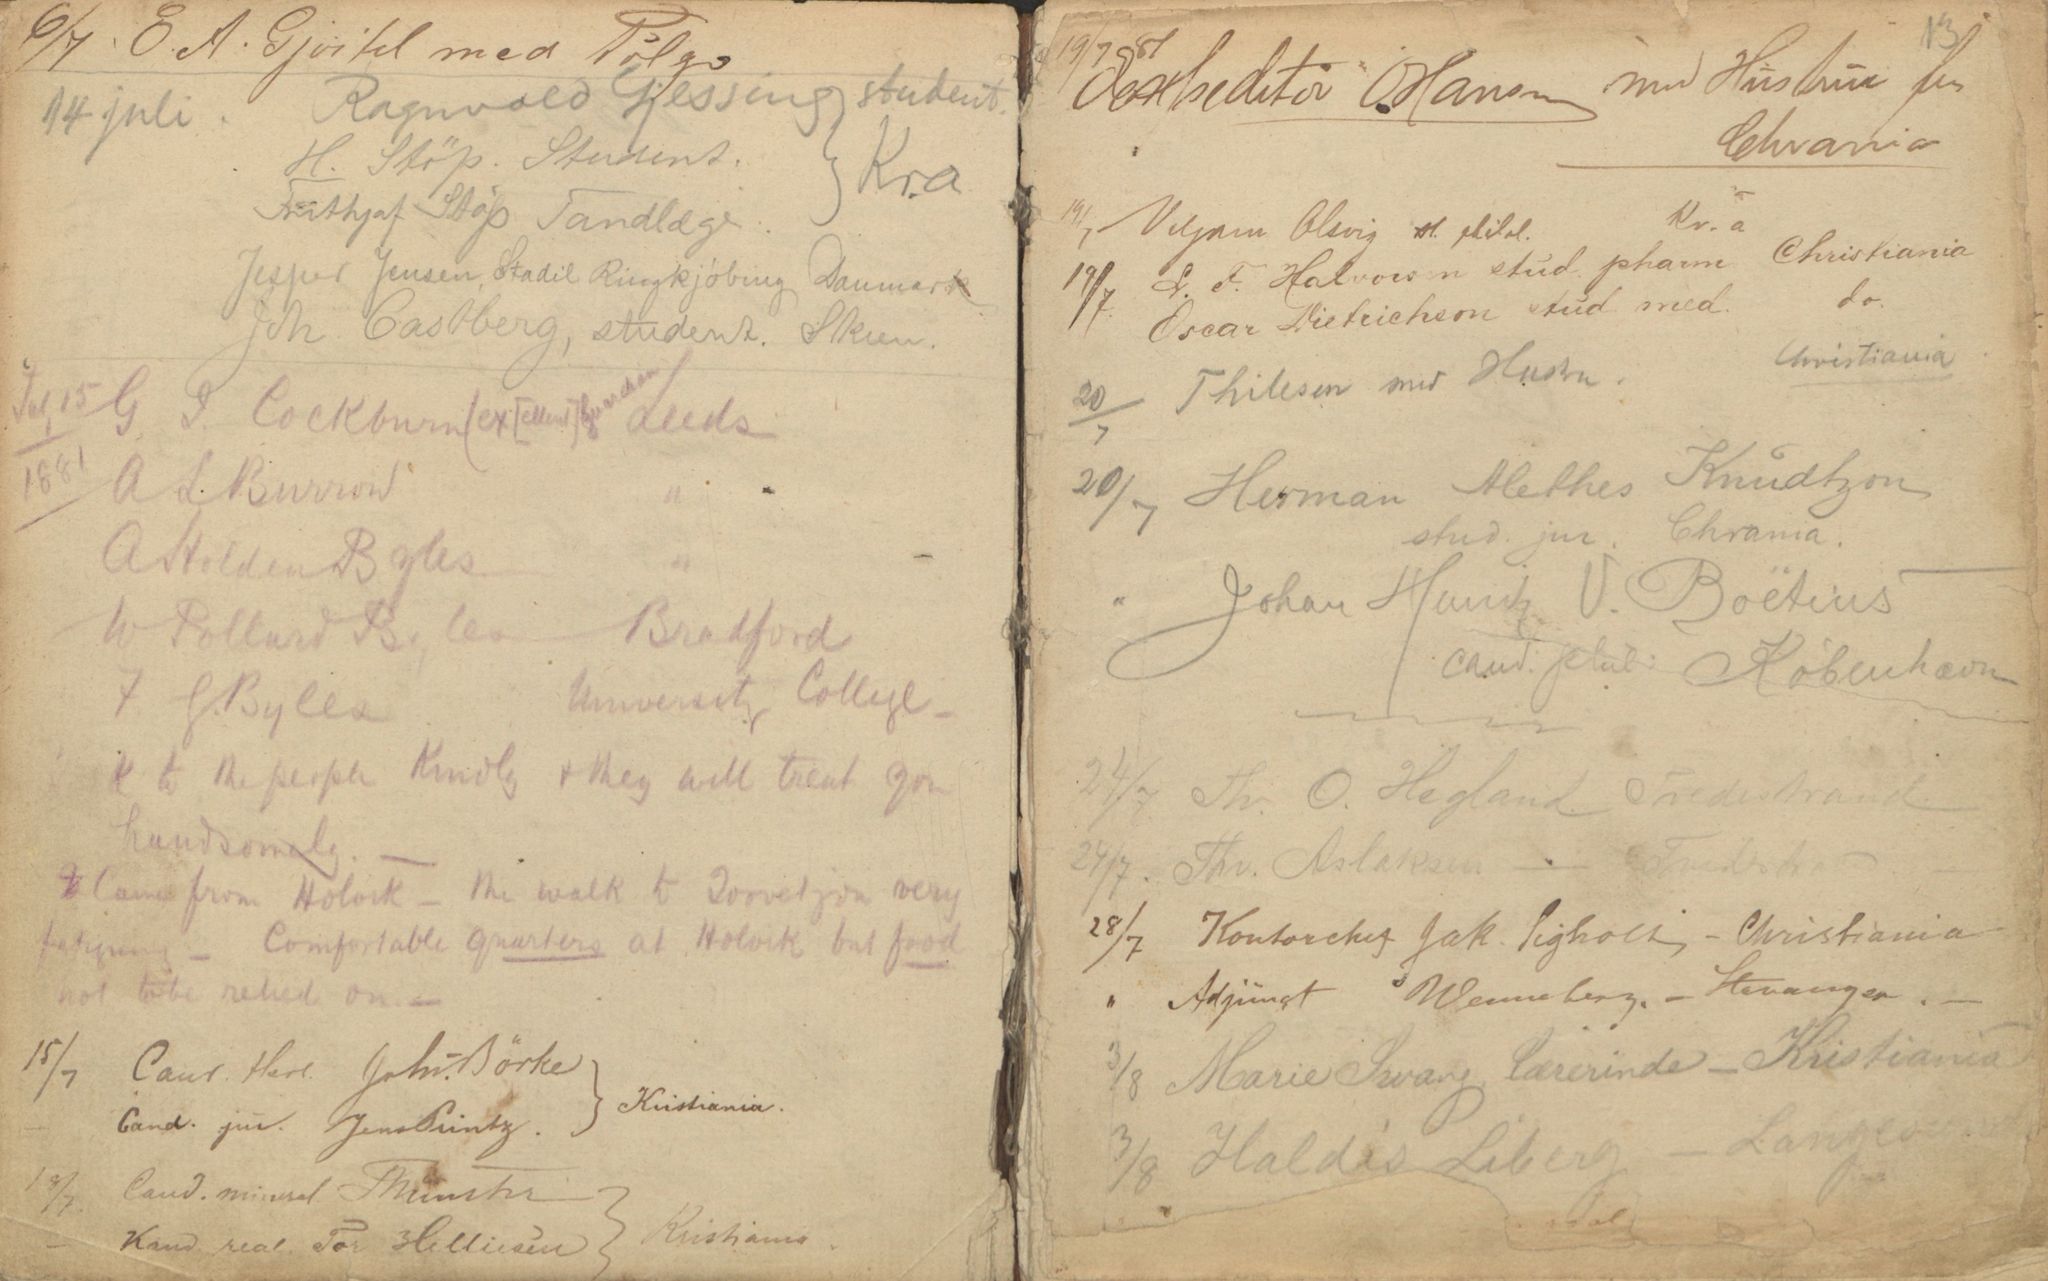 6/7. E. A. Gjvitel med Følge
14 juli. Ragnvald Gjessing student.
H. Stöp. Student. Kr.a
Frithjof Stöp Tandlæge.
Jesper Jensen, Stadil Ringkjöbing Danmark
Joh. Castberg, student. Skien.
Jul 15 1881
G I. Cockburn Leeds
A L. Burrow "
A Holden Byles "
W Pollard Byles Bradford
F. G. Byles University College
to the people Kindly & they will treat you
handsomely. —
Came from Holvik — the walk to very
fatiguing — Comfortable quarters at Holvik but food
not to be relied on. —
15/7 Cand. Joh. Börke
— Cand. jur. Jens Printz. Kristiania.
18/7. Cand. mineral Münster
— Kand. real. Tor Helliesen Kristiania.
13
19/7 81
Expeditör O. Hansen med Hustru fra
Chrania
19/7 Viljam Olsvig st. philol. Kr.a
19/7. L. F. Halvorsen stud. pharm Christiania
Oscar Dietrichson stud med. do.
20/7 Thilesen med Hustru. Christiania
20/7 Herman Alethes Knudtzon
stud. jur. Chrania.
" Johan V. Boëtius
cand. phil: Köbenhavn
24/7 Th. O. Hegland Tvedestrand
24/7. Thv. Aslaksen —
28/7 Kontorchef Jak. Sigholt, — Christiania
" Adjunct Wenneberg. — Stavanger. —
3/8 Marie Svang, Lærerinde — Kristiania
3/8 Haldis Liberg — Langesund